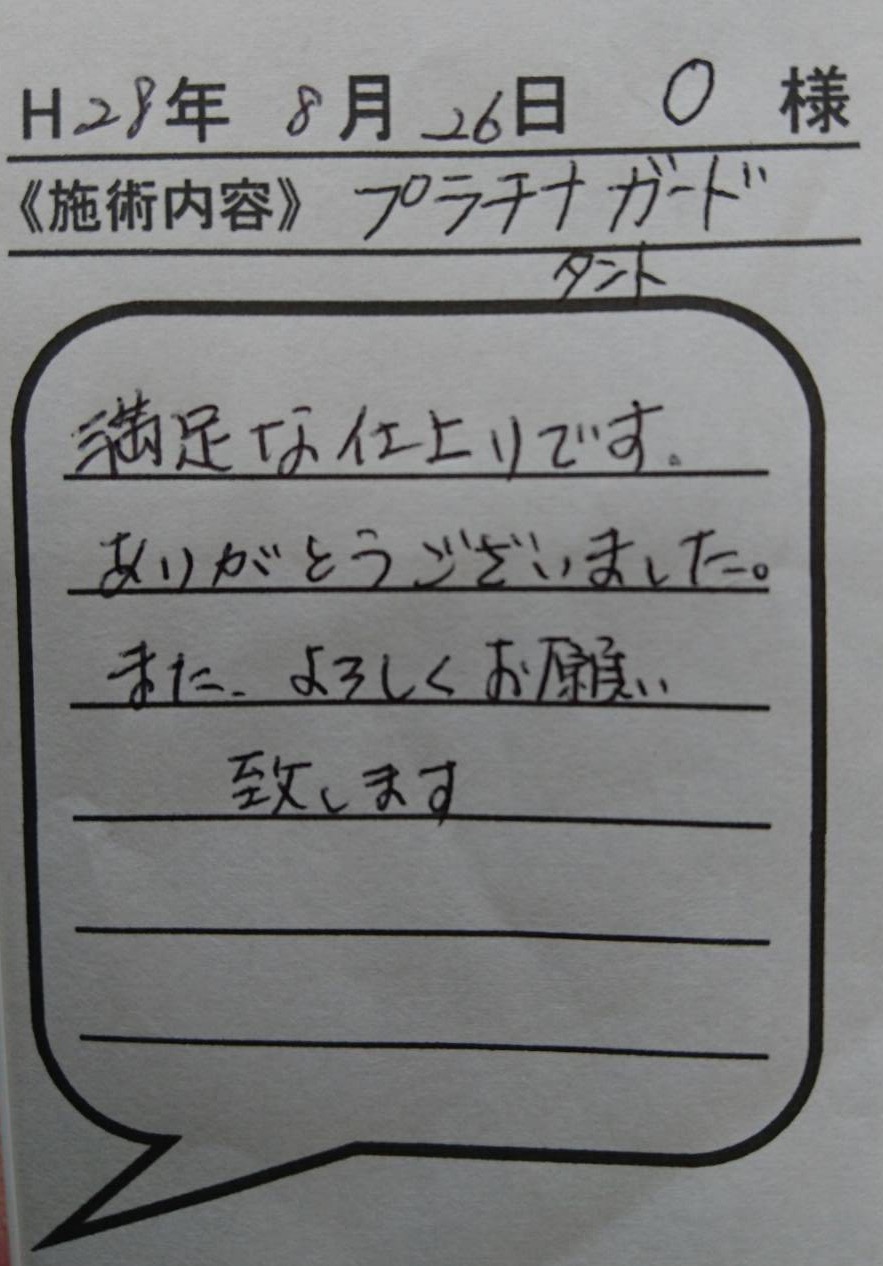 H28年 8月 26日 O 様
《施術内容》 プラチナガード
タント
満足な仕上りです。
ありがとうございました。
また、よろしくお願い
致します